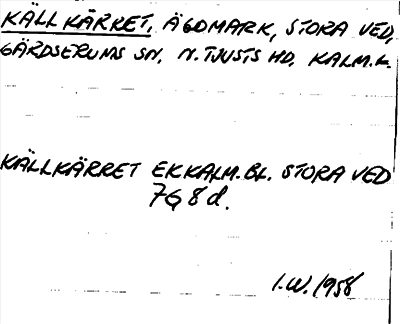 KÄLLKÄRRET, ÄGOMARK, STORA VED,
GÄRDSERUMS SN, N. TJUSTS HD, KALM. L.
KÄLLKÄRRET EK KALM. BL. STORA VED
7G 8d.
I.W. 1958